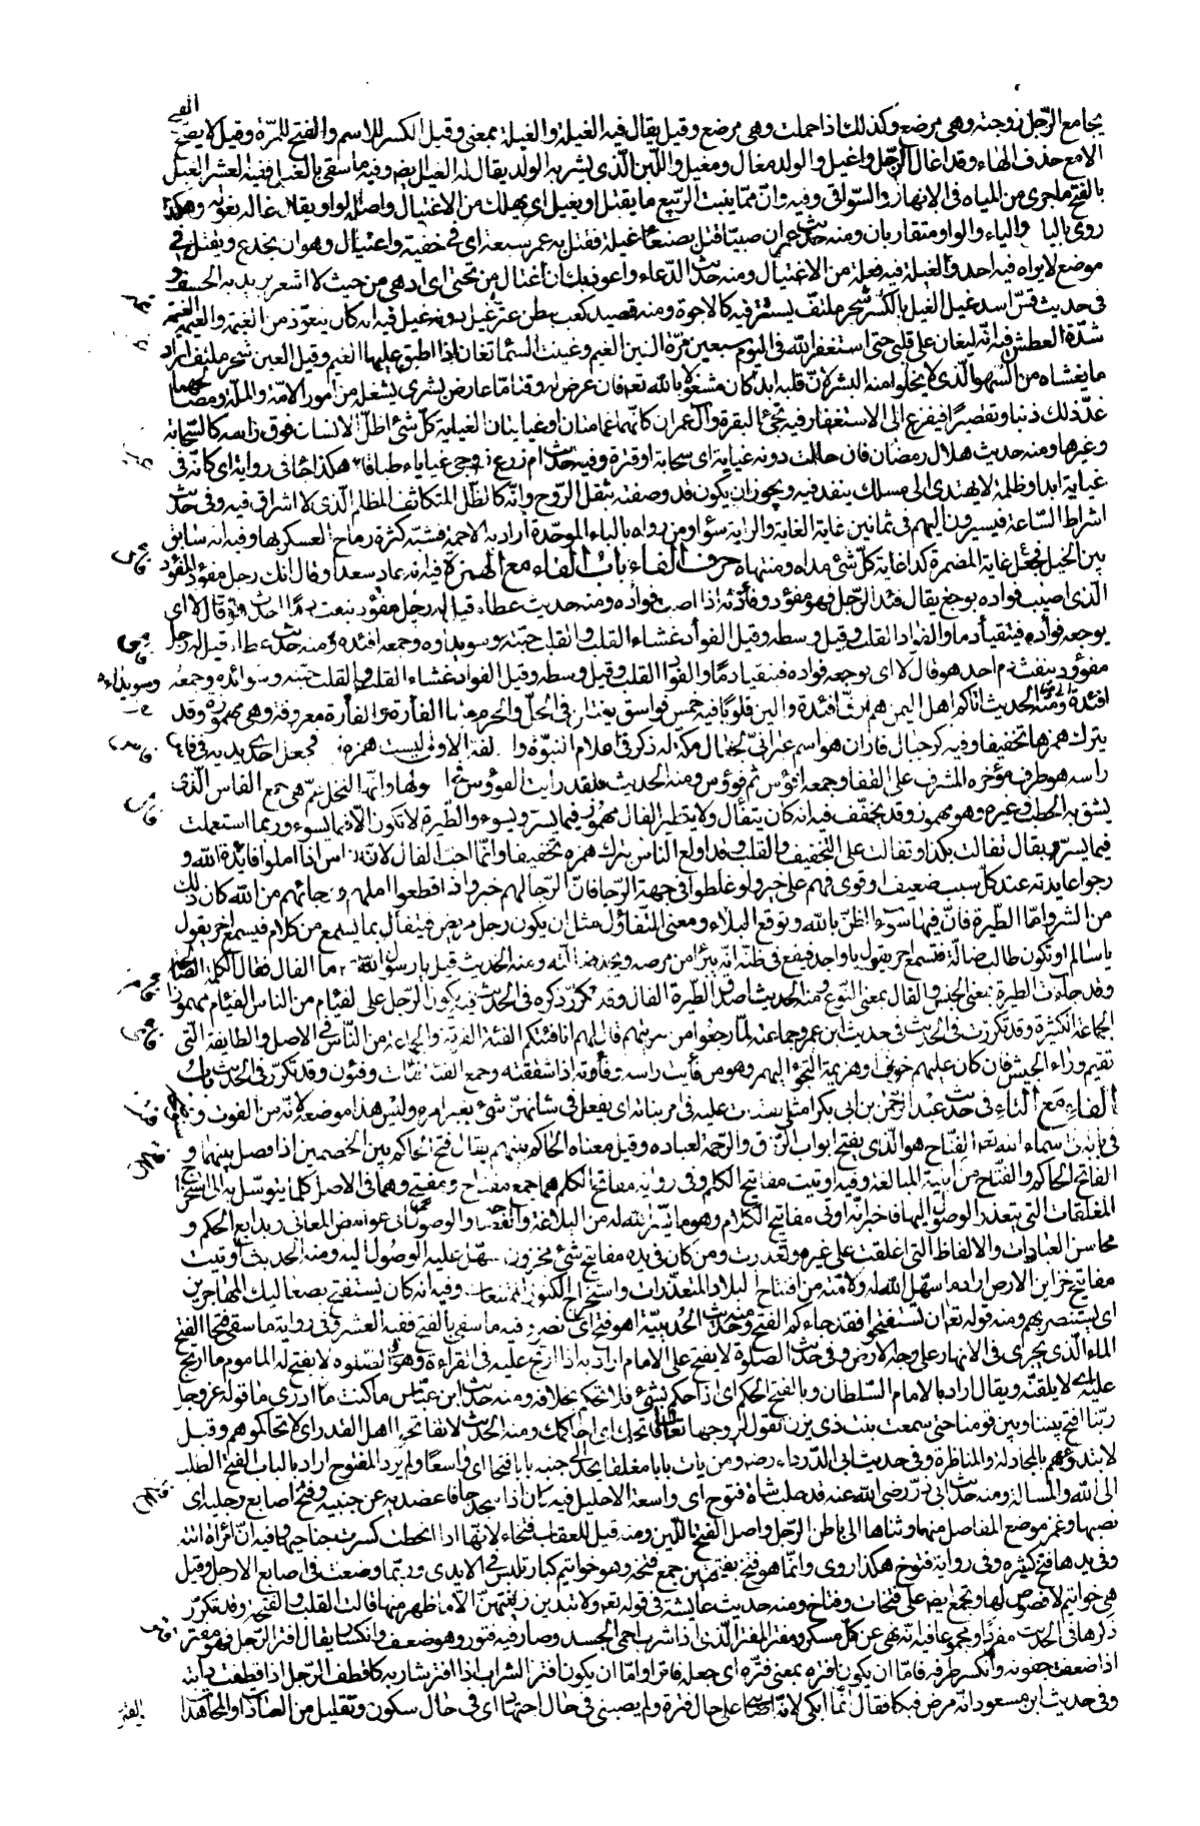 يجامع الرّجل زوجته وهى مرضع وكذلك اذا حملت وهى مرضع وقيل يقال فيه الغيلة والغيلة بمعنى وقيل الكسر للاسم والفتح للمرّة وقيل لا يصحّ الفتح
الا مع حذف الهاء وقد اغال الرّجل واغيل والولد مغال ومغيل واللّبن الّذى يشربه الولد يقال له الغيل يض وفيه ما سقى بالغيل ففيه العشر الغيل
بالفتح ما جرى من المياه فى الانهار والسّواقى وفيه وانّ ممّا ينبت الرّبيع ما يقتل او يغيل اى يهلك من الاغتيال واصله الواو يقال غاله يغوله وهكذا
روى باليا والياء والواو متقاربان ومنه حديث عمر ان صبيّا قتل بصنعا غيلة فقتل به عمر سبعة اى فى خفية واغتيال وهو ان يخدع ويقتل فى
موضع لا يراه فيه احد والغيلة فيه فعلة من الاغتيال ومنه حديث الدّعاء واعوذ بك ان اغتال من تحتى اى ادهى من حيث لا اشعر يريد به الخسف و
فى حديث قسّ اسد غيل الغيل بالكسر شجر ملتفّ يستتر فيه كالاجمة ومنه قصيد كعب ببطن عثّر غيل دونه غيل فيه انه كان يتعوّذ من الغيمة والعيمة الغيمة
شدّة العطش فيه انّه ليغان على قلبى حتى استغفر الله فى اليوم سبعين مرّة الغين الغيم وغينت السّماء تغان اذا اطبق عليها الغيم وقيل الغين شجر ملتفّ اراد
ما يغشاه من السّهو الّذى لا يخلوا منه البشر لانّ قلبه ابدا كان مشغولا بالله تعه فان عرض له وقتا ما عارض بشرى يشغله من امور الامّة والملّة ومصالحهما
عدّ ذلك ذنبا وتقصيرا فيفرع الى الاستغفار فيه تجئ البقرة وآل عمران كانّهما غمامتان او غيايتان الغياية كلّ شئ اظلّ الانسان فوق راسه كالسّحابة
وغيرها ومنه حديث هلال رمضان فان حالت دونه غياية اى سحابة او قترة وفيه حديث ام زرع زوجى غياياء طباقاء هكذا جا فى رواية اى كانّه فى
غياية ابدا وظلمة لا يهتدى الى مسلك ينفذ فيه ويجوز ان يكون قد وصفته بثقل الرّوح وانّه كالظّل المتكاثف المظلم الّذى لا اشراق فيه وفى حديث
اشراط السّاعة فيسيرون اليهم فى ثمانين غاية الغاية والراية سواء ومن رواه بالباء الموحّدة اراد به الاجمة فشبّه كثرة رماح العسكر بها وفيه انه سابق
بين الخيل فجعل غاية المضمرة كذا غاية كلّ شئ مداه ومنتهاه حرف الفاء باب الفاء مع الهمزة فيه انه عاد سعدا وقال انك رجل مفؤد المفؤد
الّذى اصيب فواده بوجع يقال فئد الرّجل فهو مفؤد وفأدته اذا اصبت فواده ومنه حديث عطاء قيل له رجل مفؤد ينفث دمًا احدث هو قال لا اى
يوجعه فواده فيتقيأ دما والفواد القلب وقيل وسطه وقيل الفواد غشاء القلب والقلب حبّته وسويداوه وجمعه افئدة ومنه حديث عطاء قيل له رجل
مفؤود ينفث دم احدث هو قال لا اى يوجعه فواده فيتقيأ دمًا والفواد القلب وقيل وسطه وقيل الفواد غشاء القلب والقلب حبّته وسوائده وجمعه وسويداه
افئدة ومنه الحديث اتاكم اهل اليمن هم ارقّ افئدة والين قلوبًا فيه خمس فواسق يقتلن فى الحلّ والحرم منها الفأرة والفأرة معروفة وهى مهموزة وقد
يترك همزها تخفيفا وفيه ذكر جبال فاران هو اسم عبرانىّ لجبال مكّة له ذكر فى اعلام النبوّة والفه الاولى ليست همزة فجعل احدى يديه فى فاس
راسه هو طرف مؤخره المشرف على القفا وجمعه افؤس ثم فوؤس ومنه الحديث فلقد رايت الفووس فى اصولها وانّها لنخل عمّ هى جمع الفاس الّذى
يشق به الحطب وغيره وهو مهموز وقد يخفّف فيه انه كان يتفأل ولا يتطيّر الفال مهموز فيما يسرّ ويسوء والطّيرة لا تكون الّا فيما يسوء وربما استعملت
فيما يسرّ ويقال تفالت بكذا وتفالت على التخفيف والقلب وقد اولع الناس بترك همزه تخفيفا وانّما احبّ الفال لانّ النّاس اذا املوا فايدة الله و
رجوا عايدته عند كلّ سبب ضعيف او قوى فهم على خير ولو غلطوا فى جهة الرّجا فانّ الرّجا لهم خير واذا قطعوا املهم ورجائهم من الله كان ذلك
من الشر وامّا الطّيرة فانّ فيها سوء الظنّ بالله وتوقع البلاء ومعنى التفاؤل مثل ان يكون رجل مريض فيتفأل بما يسمع من كلام فيسمع اخر يقول
يا سالم او تكون طالب ضالّة فتسمع اخر يقول يا واجد فيقع فى ظنّه انّه يبرأ من مرضه ويجد ضالّته ومنه الحديث قيل يا رسول الله ما الفال فقال الكلمة الصّالحة
وقد جاءت الطيرة بمعنى الجنس والفال بمعنى النوع ومنه الحديث اصدق الطّيرة الفال وقد تكرّر ذكره فى الحديث فيه يكون الرّجل على الفئام من الناس الفئام مهموز
الجماعة الكثيرة وقد تكرّرت فى الحديث فى حديث ابن عمر وجماعته لمّا رجعوا من سريّتهم قال لهم انا فئتكم الفئة الفرقة والجماعة من النّاس فى الاصل والطايفة الّتى
تقيم وراء الجيش فان كان عليهم خوف او هزيمة التجؤا اليهم وهو من فأيت راسه وفأوته اذا شققته وجمع الفئة فئات وفئون وقد تكرّر فى الحديث باب
الفاء مع التاء فى حديث عبد الرّحمن بن ابى بكر امثلى يفتات عليه فى بناته اى يفعل فى شانهنّ شئ بغير امره وليس هذا موضعه لانّه من الفوت و
فى بابه فى اسماء الله تعه الفتّاح هو الّذى يفتح ابواب الرّزق والرّحمة لعباده وقيل معناه الحاكم بينهم يقال فتح الحاكم بين الخصمين اذا فصل بينهما و
الفاتح الحاكم والفتّاح من ابنية المبالغة وفيه اوتيت مفاتيح الكلم وفى رواية مفاتح الكلم هما جمع مفتاح ومفتح وهما فى الاصل كلّ ما يتوسّل به الى استخراج
المغلقات الّتى يتعذّر الوصول اليها فاخبر انّه اوتى مفاتيح الكلام وهو ما يسّر الله له من البلاغة والفصاحة والوصول الى غوامض المعانى وبدايع الحكم و
محاسن العبارات والالفاظ الّتى اغلقت على غيره وتعذّرت ومن كان فى يده مفاتيح شئ مخزون سهّل عليه الوصول اليه ومنه الحديث اوتيت
مفاتيح خزاين الارض اراد ما سهّل الله له ولامّته من افتتاح البلاد المتعذّرات واستخراج الكنوز الممتنعات وفيه انه كان يستفتح بصعاليك المهاجرين
اى يستنصر بهم ومنه قوله تعه ان تستفتحوا فقد جاءكم الفتح ومنه حديث الحديبيّة اهو فتح اى نصر وفيه ما سقى بالفتح ففيه العشر وفى رواية ما سقى فتحا الفتح
الماء الّذى يجرى فى الانهار على وجه الارض وفى حديث الصلوة لا يفتح على الامام اراد به اذا ارتج عليه فى القراءة وهو فى الصّلوه لا يفتح له الماموم ما ارتج
عليه اى لا يلقنه ويقال اراد بالامام السّلطان وبالفتح الحكم اى اذا حكم بشئ فلا تحكم بخلافه ومنه حديث ابن عبّاس ما كنت ما ادرى ما قوله عزّ وجلّ
ربّنا افتح بيننا وبين قومنا حتى سمعت بنت ذى يزن تقول لزوجها تعال افاتحك اى احاكمك ومنه الحديث لا تفاتحوا اهل القدر اى لا تحاكموهم وقيل
لا تبتدؤهم بالمجادلة والمناظرة وفى حديث ابى الدّرداء رضه ومن يات بابا مغلقا يجد الى جنبه بابا فتحا اى واسعًا ولم يرد المفتوح اراد بالباب الفتح الطلب
الى الله والمسالة ومنه حديث ابى ذرّ رضى الله عنه قد حلب شاة فتوح اى واسعة الاحليل فيه كان اذا سجد جافا عضديه عن جنبيه وفتخ اصابع رجليه اى
نصبها وغمز موضع المفاصل منها وثناها الى باطن الرّجل واصل الفتخ اللّين ومنه قيل للعقاب فتخاء لانّها اذا انحطت كسرت جناحيها وفيه انّ امراة اتته
وفى يدها فتخ كثيرة وفى رواية فتوخ هكذا روى وانّما هو فتخ بفتحتين جمع فتخه وهو خواتيم كبار تلبس فى الايدى وربّما وضعت فى اصابع الارجل وقيل
هى خواتيم لا فصوص لها وتجمع يض على فتخات وفتاخ ومنه حديث عايشة فى قوله تعه ولا تبدين زينتهنّ الا ما ظهر منها قالت القلب والفتخة وقد تكرّر
ذكرها فى الحديث مفردًا ومجموعا فيه انّه نهى عن كلّ مسكر ومفتر المفتر الّذى اذا شرب احمى الجسد وصار فيه فتور وهو ضعف وانكسار يقال افتر الرّجل فهو مفتر
اذا ضعفت جفونه وانكسر طرفه فامّا ان يكون افتره بمعنى فتّره اى جعله فاترا وامّا ان يكون افتر الشراب اذا افتر شاربه كاقطف الرّجل اذا قطفت دابّته
وفى حديث ابن مسعود انّه مرض فبكا فقال انّما ابكى لانّه اصابنى على حال فترة ولم يصبنى فى حال اجتهاد اى فى حال سكون وتقليل من العبادات والمجاهدات